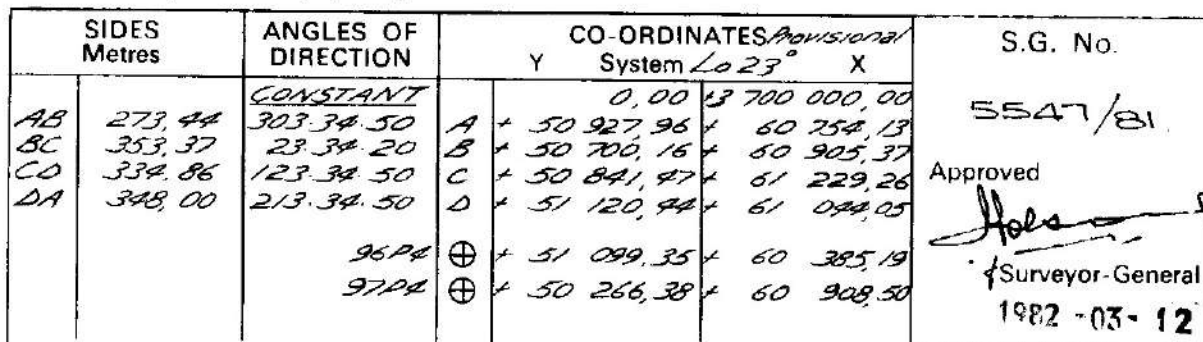 SIDES Metres ANGLES OF DIRECTION CO-ORDINATES Provisional Y System Lo 23° X S.G. No.
CONSTANT 0,00 +3 700 000,00
AB 273,44 303.34.50 A + 50 927,96 + 60 754,13 5547/81
BC 353,37 23.34.20 B + 50 700,16 + 60 905,37
CD 334,86 123.34.50 C + 50 841,47 + 61 229,26 Approved
DA 348,00 213.34.50 D + 51 120,44 + 61 044,05
96P4 ⊕ + 51 099,35 + 60 385,19
97P4 ⊕ + 50 266,38 + 60 908,50
Surveyor-General
1982-03-12